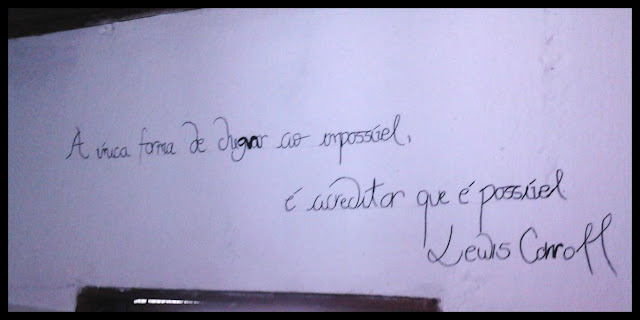 A única forma de chegar ao impossível,
é acreditar que é possível
Lewis Carroll